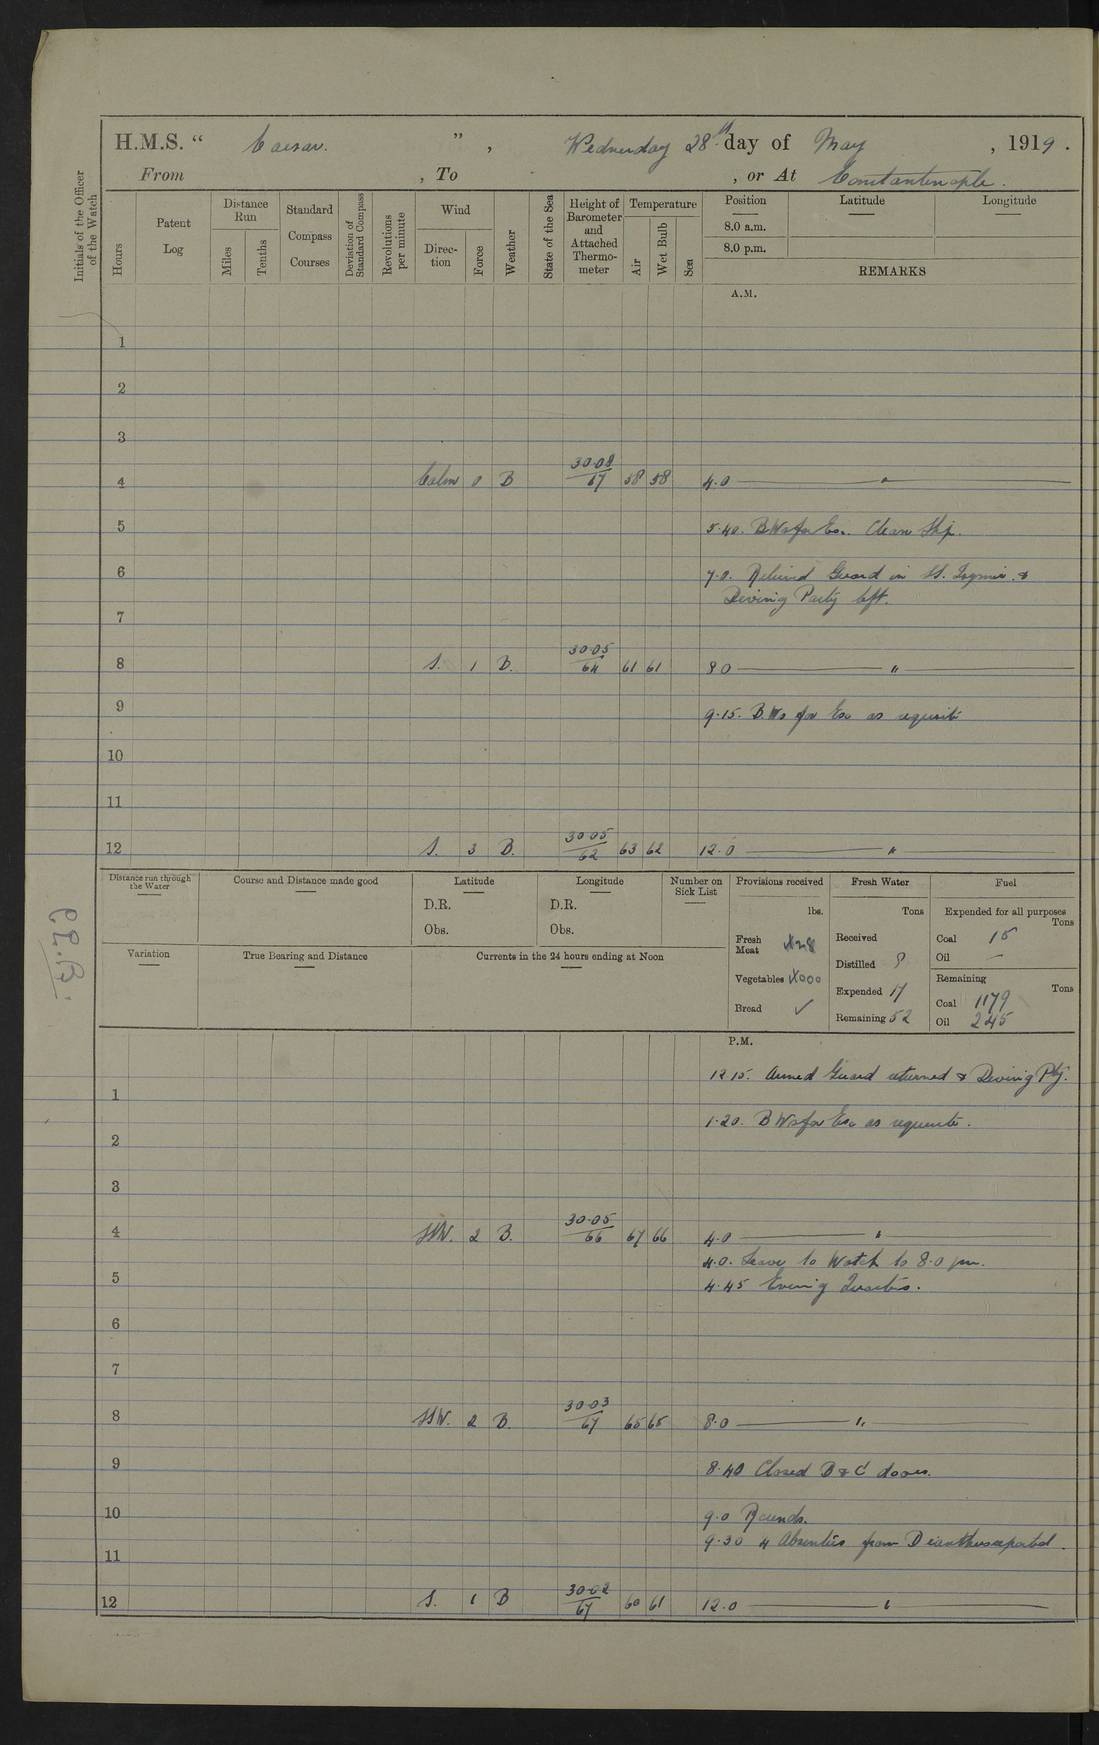 H.M.S. “ Caesar. ”, Wednesday 28th day of May, 1919.
From , To , or At Constantinople.
Initials of the Officer of the Watch
Hours
Patent Log
Distance Run
Miles
Tenths
Standard Compass Courses
Deviation of Standard Compass
Revolutions per minute
Wind
Direc-tion
Force
Weather
State of the Sea
Height of Barometer and Attached Thermo-meter
Temperature
Air
Wet Bulb
Sea
Position Latitude Longitude
8.0 a.m.
8.0 p.m.
REMARKS
A.M.
1
2
3
4 Calm 0 B 30·08 67 58 58 4·0 "
5 5·40. B Ws for Ex. Clean Ship.
6 7·0. Relieved Guard in SS. &
Diving Party left.
7
8 S. 1 B. 30·05 64 61 61 8 0 "
9 9·15. B.Ws for Ex as requisite
10
11
12 S. 3 B. 30·05 62 63 62 12·0 "
Distance run through the Water
Course and Distance made good
Latitude
D.R.
Obs.
Longitude
D.R.
Obs.
Number on Sick List
Provisions received
lbs.
Fresh Meat
Vegetables
Bread ✓
Fresh Water
Tons
Received
Distilled
Expended 17
Remaining 52
Fuel
Expended for all purposes
Tons
Coal 15
Oil –
Remaining
Tons
Coal 1179
Oil 245
Variation
True Bearing and Distance
Currents in the 24 hours ending at Noon
P.M.
12 15. Armed Guard returned & Diving Pty.
1
1·20. B Ws for Ex as requisite.
2
3
4 SSW. 2 B. 30·05 66 67 66 4·0 "
4·0. Leave to Watch to 8·0 pm.
5 4·45 Evening Quarters.
6
7
8 SSW. 2 B. 30·03 67 65 65 8·0 "
9 8·40 Closed B & C doors.
10 9·0 Rounds.
9·30 4 Absentees from Dianthus reported.
11
12 S. 1 B 30·02 67 60 61 12·0 "